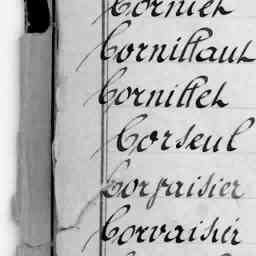 Cornillaut
Cornillet
Corseul
Corvaisier
Corvaisier